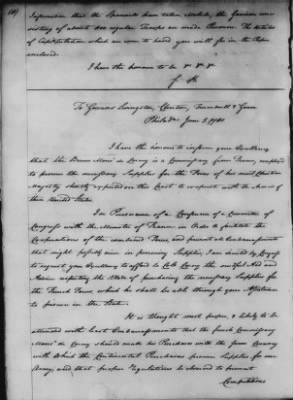 Information that the Spaniards have taken Mobile, the Garrison con-
sisting of about 800 regular Troops are made Prisoners. The Articles
of Capitulation which are come to hand you will see in the Paper
enclosed.
I have the honour to be &c &c &c
To Governors Livingston, Clinton, Trumbull & Greene
Philada. June 5, 1780
I have the honour to inform your Excellency
that the Baron Mons' de Corny is a Commissary from France, employed
to procure the necessary Supplies for the Force of his most Christian
Majesty shortly expected on this Coast to cooperate with the Arms of
these United States.
In Pursuance of a Conference of a Committee of
Congress with the Minister of France in Order to facilitate the
Cooperations of the combined Force and prevent all Embarrassments
that might possibly arise in procuring Supplies, I am directed by Congress
to request your Excellency to afford to Colo Corny the needful Aid and
Advice respecting the Mode of purchasing the necessary Supplies for
the French Force, which he shall be able through your Assistance
to procure in the State.
It is thought most proper, & likely to be
attended with least Embarrassments that the french Commissary
Mons' de Corny should make his Purchases with the same
with which the Continental Purchasers procure Supplies for our
Army, and that proper Regulations be devised to prevent
Competitions